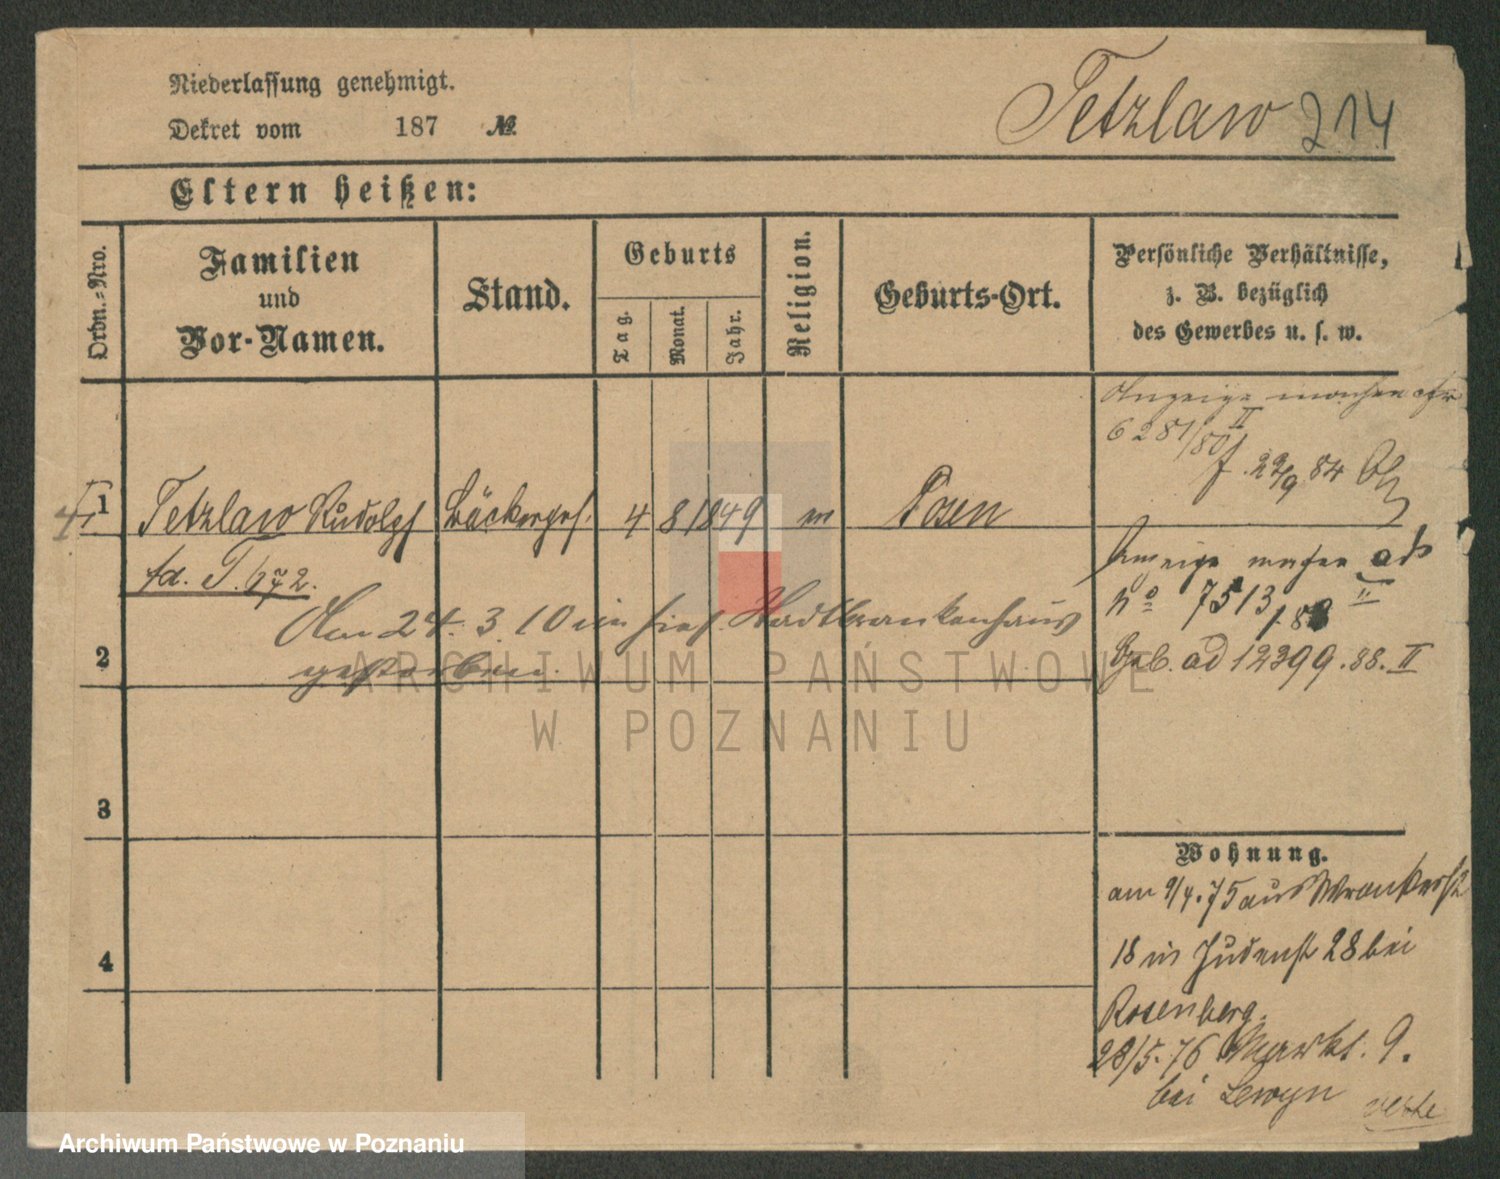 Niederlassung genehmigt.
Dekret vom 187 №
Tetzlaw 214
Eltern heißen:
Ordn.-Nro.
Familien
und
Vor-Namen.
Stand.
Geburts
Tag.
Monat.
Jahr.
Religion.
Geburts-Ort.
Persönliche Verhältnisse,
z. B. bezüglich
des Gewerbes u. s. w.
Anzeige machen
6281/80 II
22/9 84
1 Tetzlaw Rudolph Bäckerges. 4 8 1849 m Posen
fd. T.
Anzeige machen ad
No 7513 II
Am 24. 3. 10 im hies. Stadtkrankenhaus
gestorben.
2
ad 12399.88. II
3
4
Wohnung.
am 9/4.75 aus Wronkerst
18 in Judenst 28 bei
Rosenberg.
28/5.76 Markt. 9.
bei Lewyn
ARCHIWUM PAŃSTWOWE
W POZNANIU
Archiwum Państwowe w Poznaniu